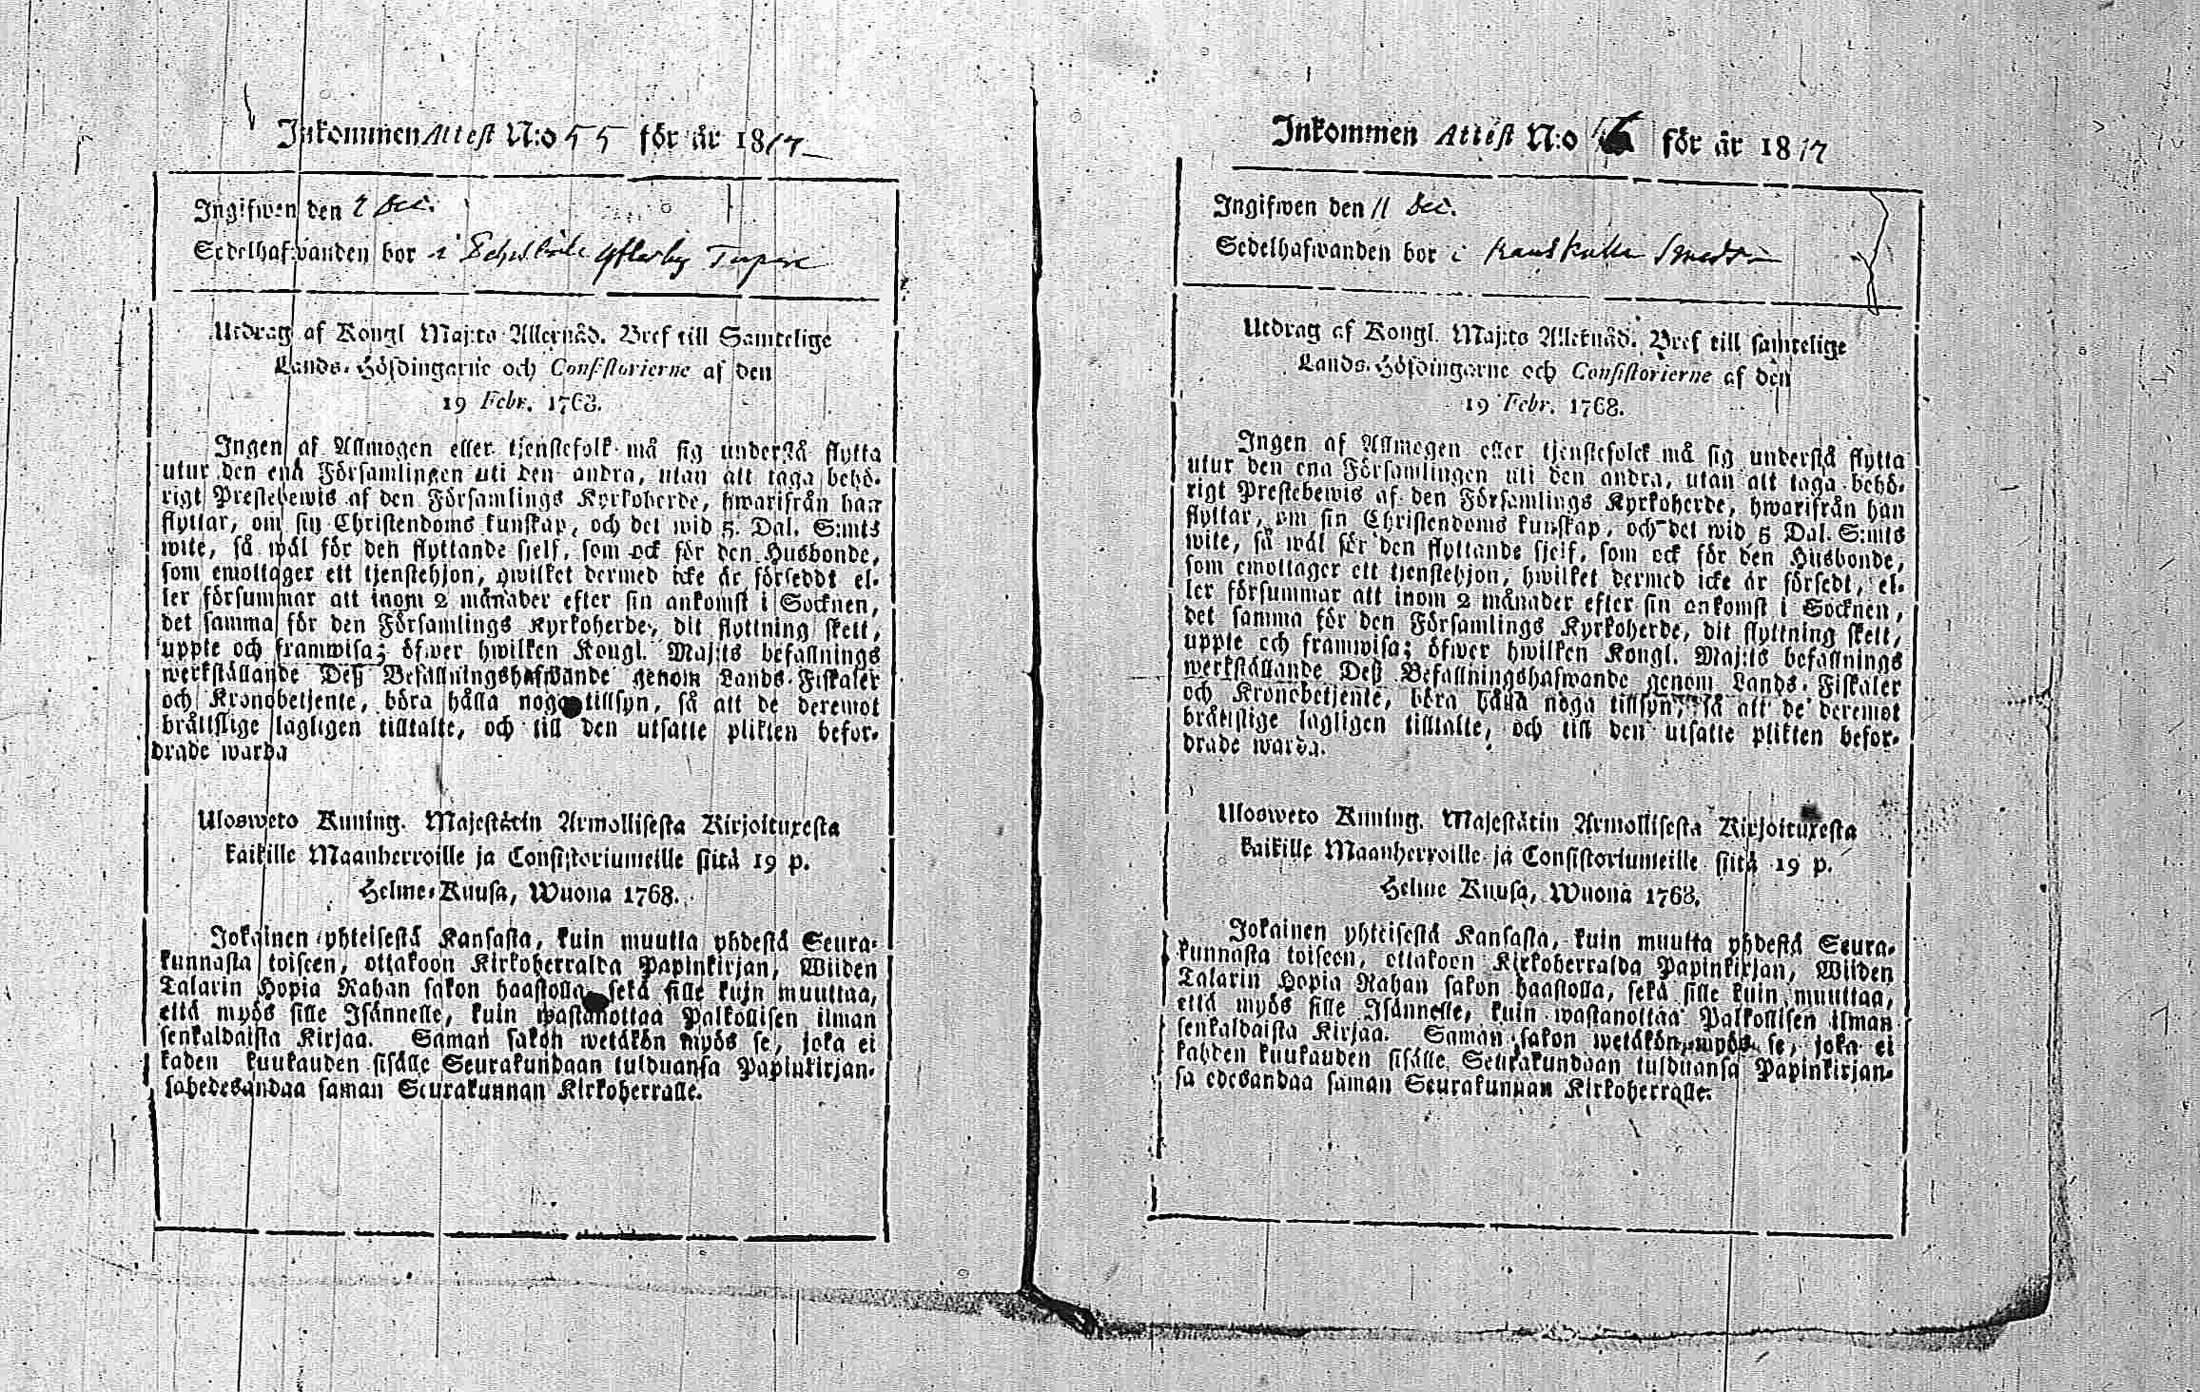 Inkommen Attest N:o 55 för år 1817
Ingifwen den 2 Dec.
Sedelhafwanden bor i
Utdrag af Kongl Maj:ts Allernåd. Bref till Samtelige
Lands-Höfdingarne och Consistorierne af den
19 Febr. 1768.
Ingen af Allmogen eller tjenstefolk må sig understå flytta
utur den ena Församlingen uti den andra, utan att taga behö-
rigt Prestebewis af den Församlings Kyrkoherde, hwarifrån han
flyttar, om sin Christendoms kunskap, och det wid 5. Dal. S:mts
wite, så wäl för den flyttande sjelf, som ock för den Husbonde,
som emottager ett tjenstehjon, hwilket dermed icke är förseddt el-
ler försummar att inom 2 månader efter sin ankomst i Socknen,
det samma för den Församlings Kyrkoherde, dit flyttning skett,
uppte och framwisa; öfwer hwilken Kongl. Maj:ts befallnings
werkställande Deß Befallningshafwande genom Lands-Fiskaler
och Kronobetjente, böra hålla noga tillsyn, så att de deremot
bråttslige lagligen tilltalte, och till den utsatte plikten befor-
drade warda
Ulosweto Kuning. Majestätin Armollisesta Kirjoituxesta
kaikille Maanherroille ja Consistoriumeille siitä 19 p.
Helme-Kuusa, Wuona 1768.
Jokainen yhteisestä Kansasta, kuin muutta yhdestä Seura-
kunnasta toiseen, ottakoon Kirkoherralda Papinkirjan, Wiiden
Talarin Hopia Rahan sakon haastolla, sekä sille kuin muuttaa,
että myös sille Isännelle, kuin wastanottaa Palkollisen ilman
senkaldaista Kirjaa. Saman sakon wetäkön myös se, joka ei
kaden kuukauden sisälle Seurakundaan tulduansa Papinkirjan-
sahedesandaa saman Seurakunnan Kirkoherralle.
Inkommen Attest N:o för år 1817
Ingifwen den 11 Dec.
Sedelhafwanden bor i
Utdrag af Kongl. Maj:ts Allernåd. Bref till samtelige
Lands-Höfdingarne och Consistorierne af den
19 Febr. 1768.
Ingen af Allmogen eller tjenstefolck må sig understå flytta
utur den ena Församlingen uti den andra, utan att taga behö-
rigt Prestebewis af den Församlings Kyrkoherde, hwarifrån han
flyttar, om sin Christendoms kunskap, och det wid 5 Dal. S:mts
wite, så wäl för den flyttande sjelf, som ock för den Husbonde,
som emottager ett tjenstehjon, hwilket dermed icke är försedt, el-
ler försummar att inom 2 månader efter sin ankomst i Socknen,
det samma för den Församlings Kyrkoherde, dit flyttning skett,
uppte och framwisa; öfwer hwilken Kongl. Maj:ts befallnings
werkställande Deß Befallningshafwande genom Lands-Fiskaler
och Kronobetjente, böra hålla noga tillsyn, så att de deremot
bråttslige lagligen tilltalte, och till den utsatte plikten befor-
drade warda.
Ulosweto Kuning. Majestätin Armollisesta Kirjoituxesta
kaikille Maanherroille ja Consistoriumeille siitä 19 p.
Helme Kuusa, Wuona 1768.
Jokainen yhteisestä Kansasta, kuin muutta yhdestä Seura-
kunnasta toiseen, ottakoen Kirkoherralda Papinkirjan, Wiiden
Talarin Hopia Rahan sakon haastolla, sekä sille kuin muuttaa,
että myös sille Isännelle, kuin wastanottaa Palkollisen ilman
senkaldaista Kirjaa. Saman sakon wetäkön myös se, joka ei
kahden kuukauden sisälle Seurakundaan tulduansa Papinkirjan-
sa edesandaa saman Seurakunnan Kirkoherralle.